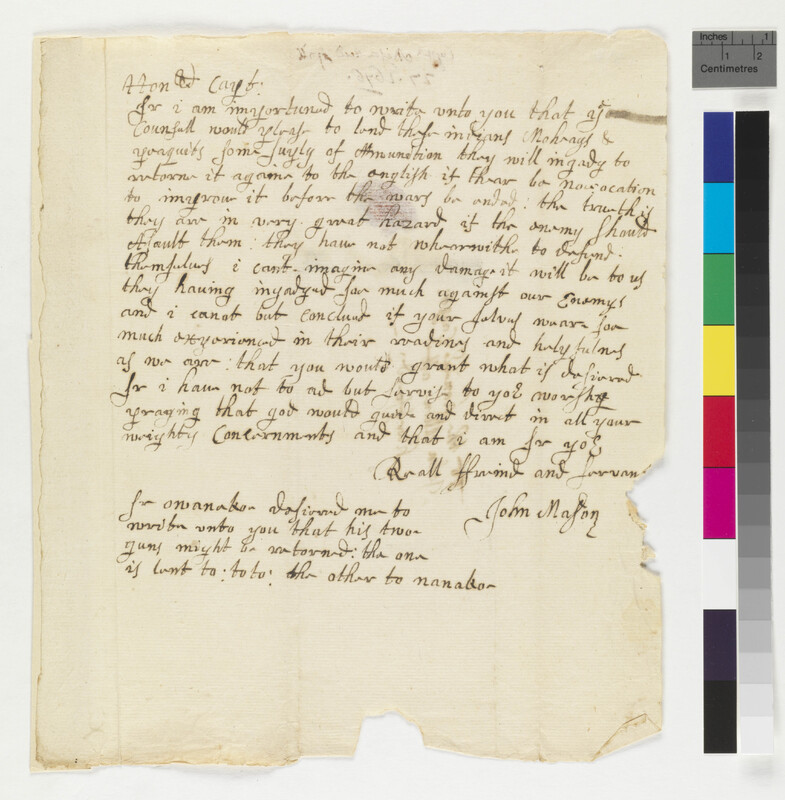 Honed Capt:
Sr i am importuned to write vnto you that yor
Counsell would please to lend these indians Moheags &
peaquits some suply of Amunition they will ingadg to
retorne it againe to the english if thear be no ocation
to improue it before the wars be ended: the trueth is
they are in very great hazard if the enemy should
Asault them: they haue not whearwithe to defend
themselues i cant imagine any damage it will be to us
they hauing ingadged soe much against our Enemys
and i canot but conclued if your selues weare soe
much experienced in their readines and helpfulnes
as we are: that you would grant what is desiered
Sr i haue not to ad but servise to yor worship
praying that god would guide and direct in all your
weighty Concernments and that i am Sr yor
Reall ffreind and servant
John Mason
Sr owanekoe desiered me to
write vnto you that his twoe
guns might be retorned: the one
is lent to: toto: the other to nanakoe
Inches
1
1
2
Centimetres